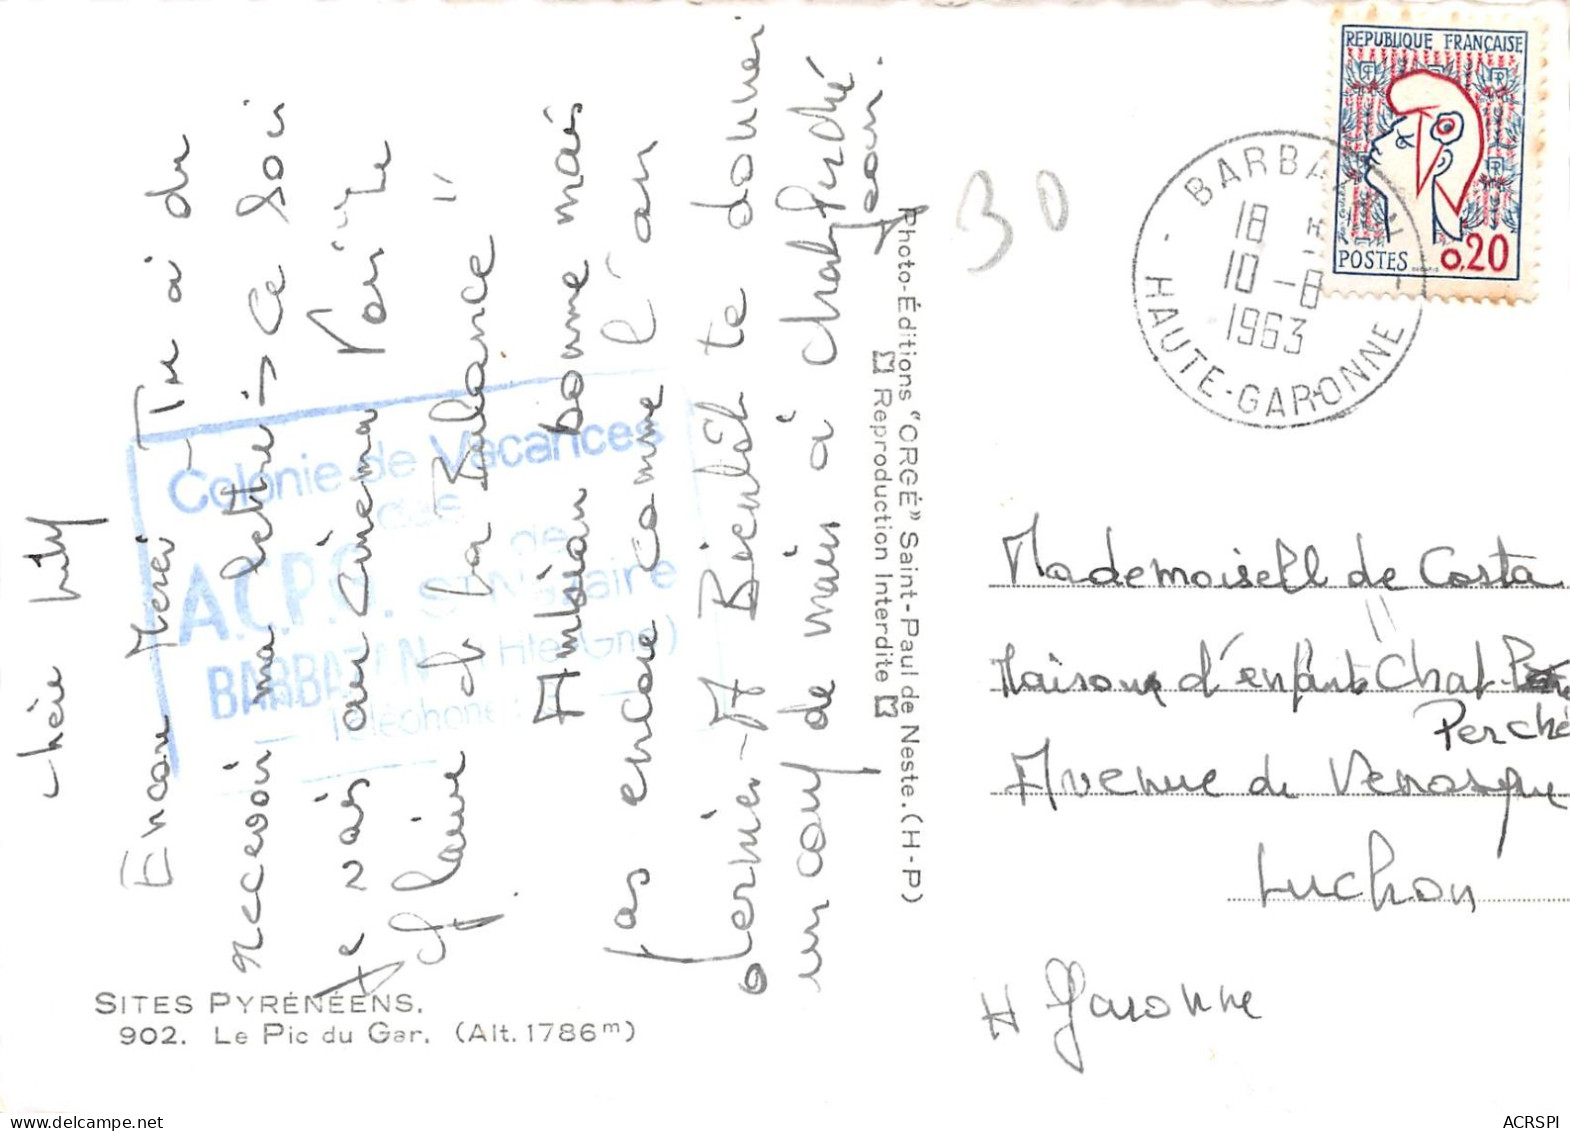 chère Lily
Encore Merci Tu a du
recevoir ma lettre, ce Soir
Je vais au cinéma Voir "Le
glaive et la Balance"
Ambian bonne mais
pas encore comme l'an
dernier. A Bientôt te donner
un coup de main à Chat perché
Colonie de Vacances
des
A.C.P.G. de St Nazaire
BARBAZAN (Hte-Gne)
Téléphone :
SITES PYRÉNÉENS.
902. Le Pic du Gar. (Alt. 1786m)
Photo-Éditions "ORGÉ" Saint-Paul de Neste. (H-P)
Reproduction Interdite
30
BARBAZAN
18 H
10-8
1963
HAUTE-GARONNE
REPUBLIQUE FRANÇAISE
POSTES 0,20
Mademoisell de Costa
Maison d'enfants Chat
Perché
Avenue de Venasque
Luchon
H Garonne
ACRSPI